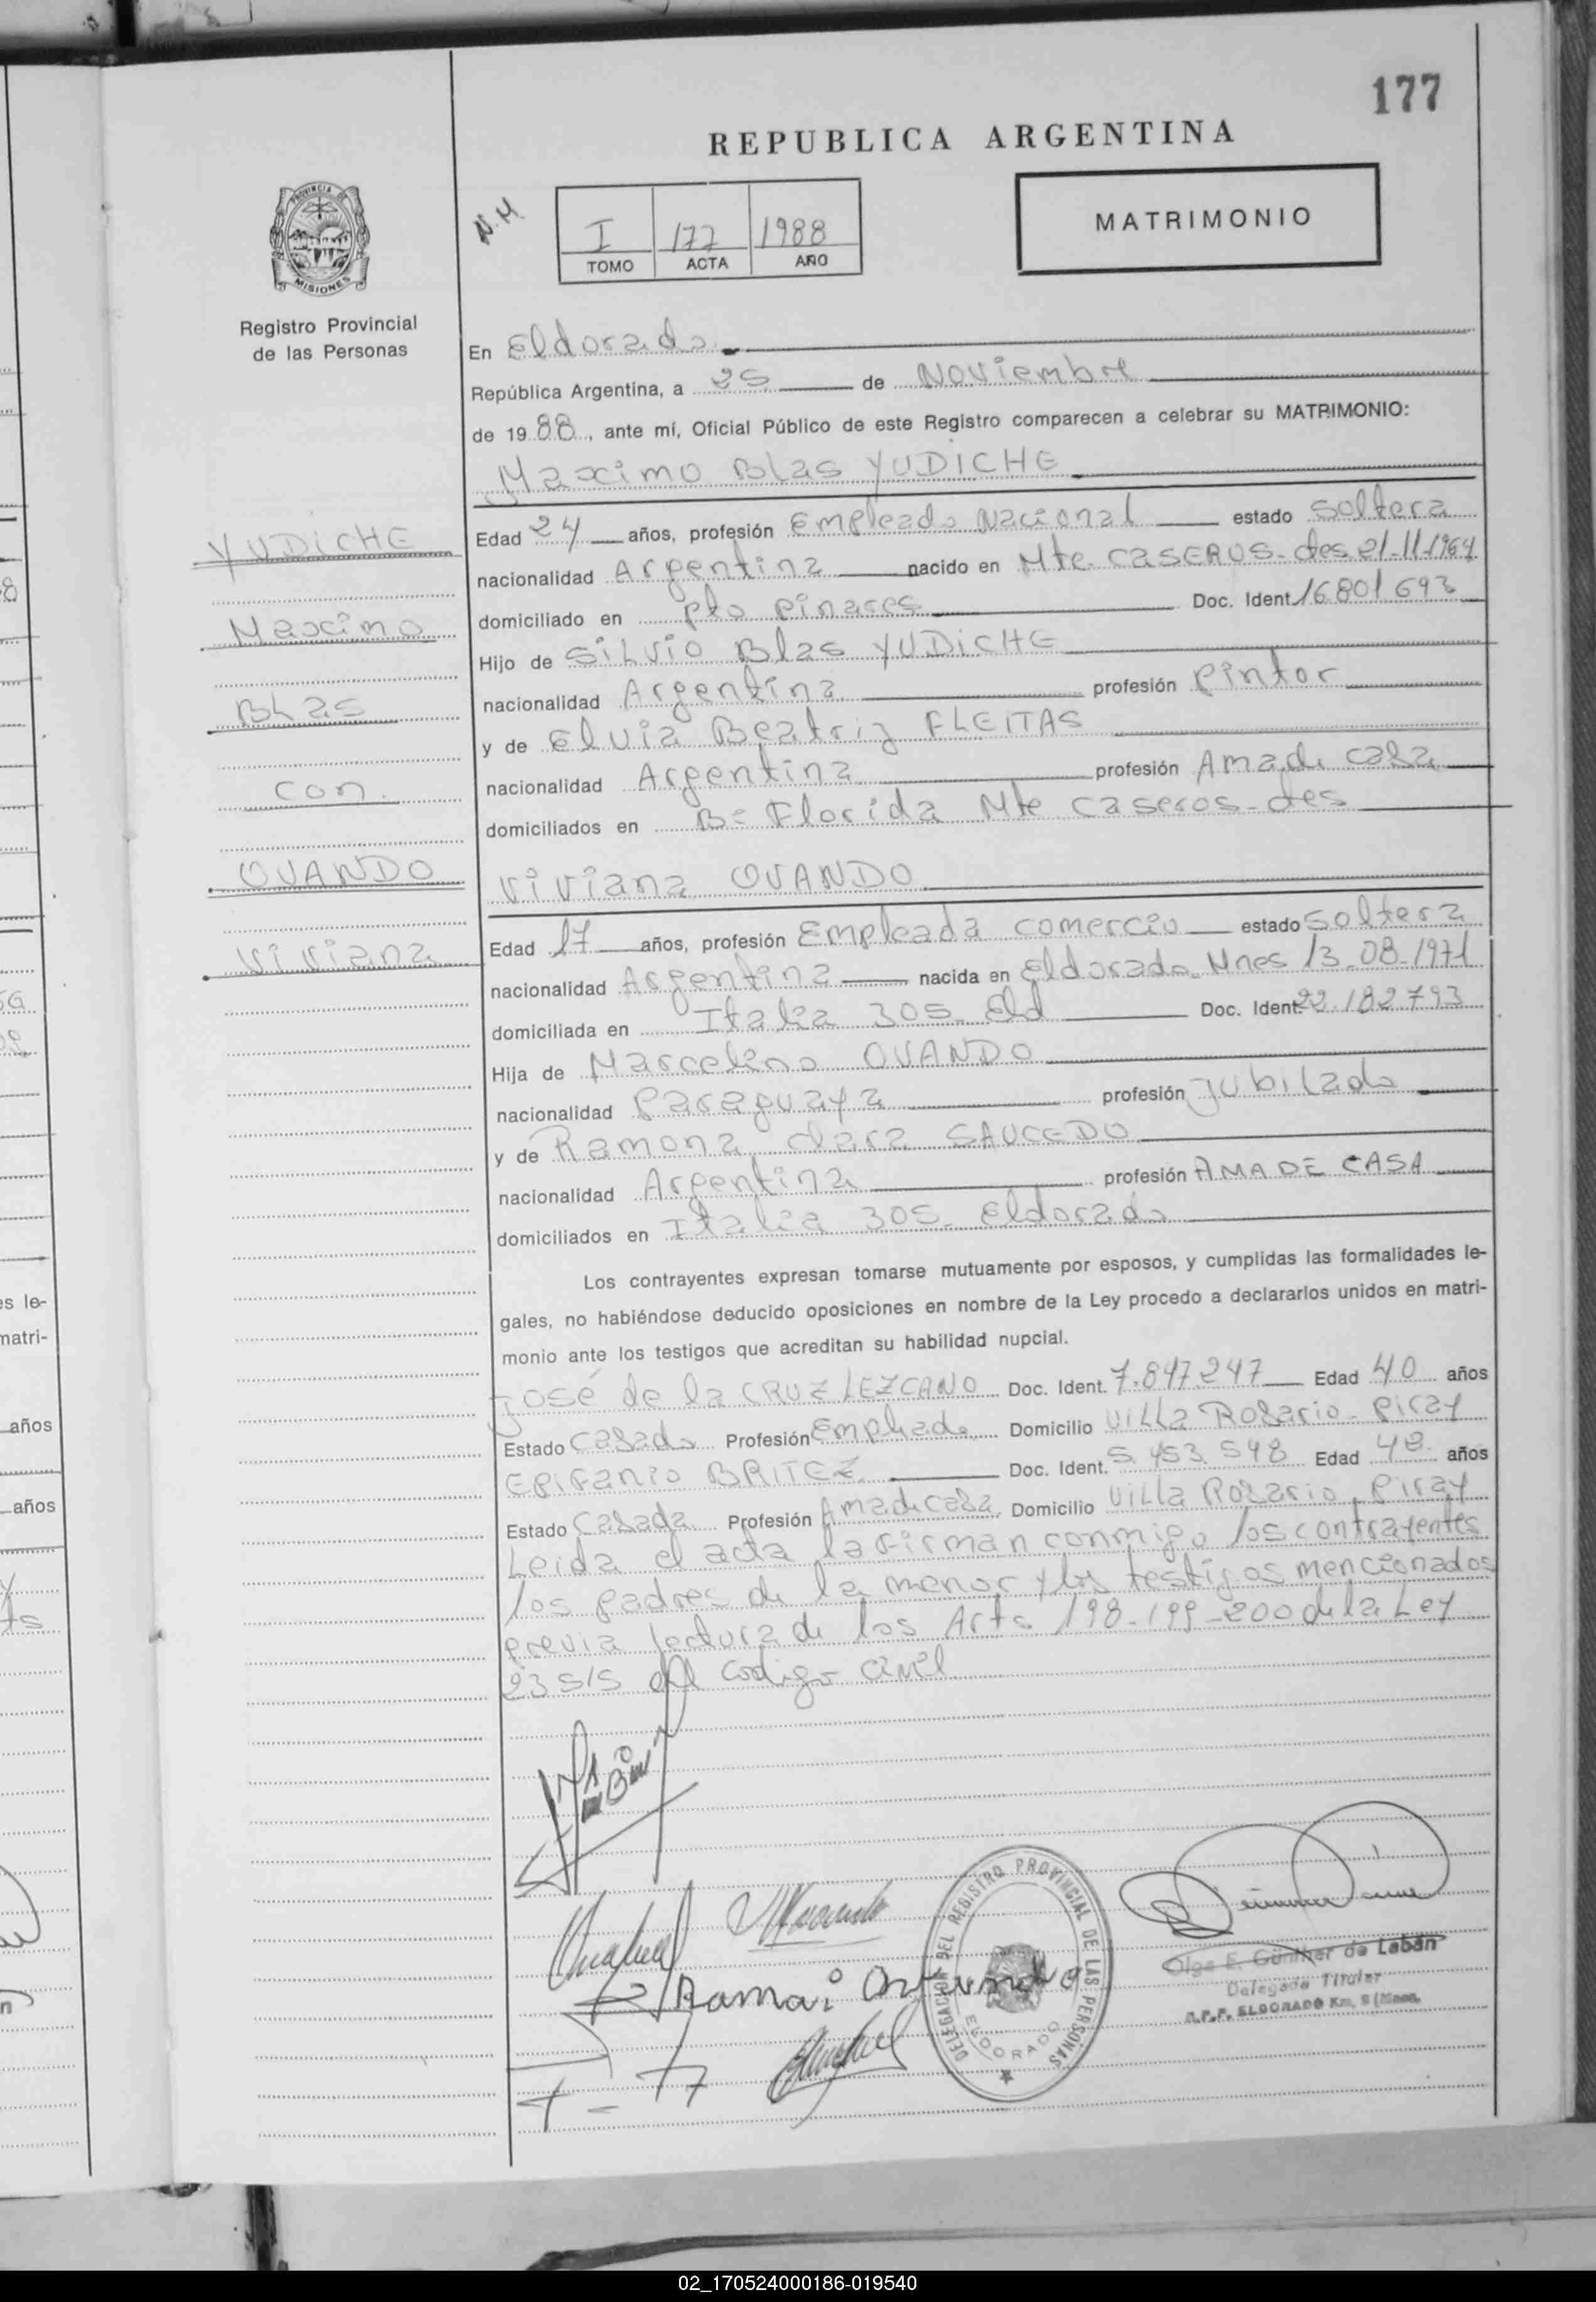 177
REPUBLICA ARGENTINA
PROVINCIA DE
MISIONES
Registro Provincial
de las Personas
N.M
I 177 1988
TOMO ACTA AÑO
MATRIMONIO
En Eldorado
República Argentina, a 25 de Noviembre
de 19 88, ante mí, Oficial Público de este Registro comparecen a celebrar su MATRIMONIO:
Maximo Blas YUDICHE
YUDICHE
Maximo
BLas
con.
OVANDO
Viviana
Edad 24 años, profesión Empleado Nacional estado soltera
nacionalidad Argentina nacido en Mte. CASEROS- ctes. 21-11-1964
domiciliado en pto Pinares Doc. Ident. 16.801.693
Hijo de SILVIO Blas YUDICHE
nacionalidad Argentina profesión Pintor
y de Elvia Beatriz FLEITAS
nacionalidad Argentina profesión Ama de casa
domiciliados en B= Florida Mte Caseros-ctes
Viviana OVANDO
Edad 17 años, profesión Empleada comercio estado soltera
nacionalidad Argentina nacida en Eldorado-Mnes 13-08-1971
domiciliada en Italia 305- Eld Doc. Ident. 22.182.793
Hija de Marcelino OVANDO
nacionalidad Paraguaya profesión jubilado
y de Ramona clara SAUCEDO
nacionalidad Argentina profesión AMA DE CASA
domiciliados en Italia 305- Eldorado
Los contrayentes expresan tomarse mutuamente por esposos, y cumplidas las formalidades le-
gales, no habiéndose deducido oposiciones en nombre de la Ley procedo a declararlos unidos en matri-
monio ante los testigos que acreditan su habilidad nupcial.
José de la CRUZ LEZCANO Doc. Ident. 7.847.247 Edad 40 años
Estado Casado Profesión Empleado Domicilio Villa Rosario- Piray
EPIFANIO BRITEZ Doc. Ident. 5.453.548 Edad 48 años
Estado Casada Profesión Ama de casa Domicilio Villa Rosario, Piray
Leida el acta la firman conmigo los contrayentes
los padres de la menor y los testigos mencionados
previa lectura de los Arts 198-199-200 de la Ley
23515 del codigo civil
DELEGACION DEL REGISTRO PROVINCIAL DE LAS PERSONAS
ELDORADO
Olga E. Günther de Labán
Delegada Titular
R.P.P. ELDORADO Km. 9 (Mnes.
es le-
matri-
años
años
02_170524000186-019540